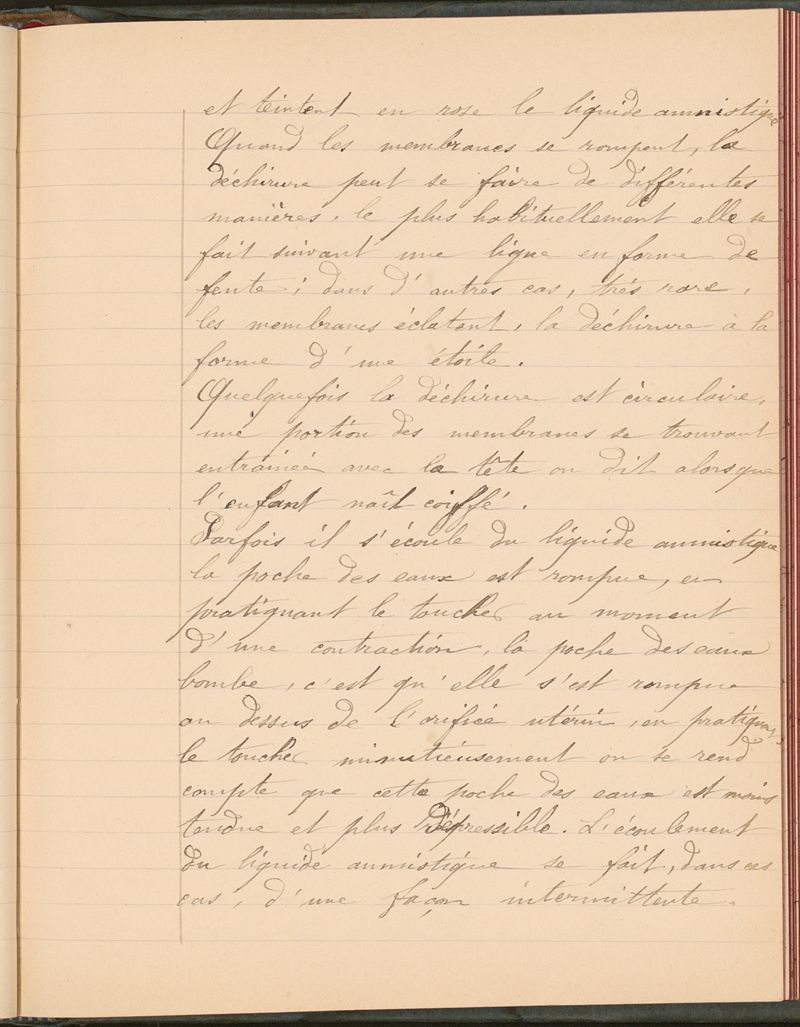 et teintent en rose le liquide amniotique
Quand les membranes se rompent, la
déchirure peut se faire de différentes
manières. le plus habituellement elle se
fait suivant une ligne en forme de
fente ; dans d'autres cas, très rare,
les membranes éclatent, la déchirure à la
forme d'une étoile.
Quelquefois la déchirure est circulaire,
une portion des membranes se trouvant
entrainée avec la tête on dit alors que
l'enfant naît coiffé.
Parfois il s'écoule du liquide amniotique
la poche des eaux est rompue, en
pratiquant le toucher au moment
d'une contraction, la poche des eaux
bombe, c'est qu'elle s'est rompue
au dessus de l'orifice utérin, en pratiquant
le toucher minutieusement on se rend
compte que cette poche des eaux est moins
tendue et plus dépressible. L'écoulement
du liquide amniotique se fait, dans ces
cas, d'une façon intermittente.